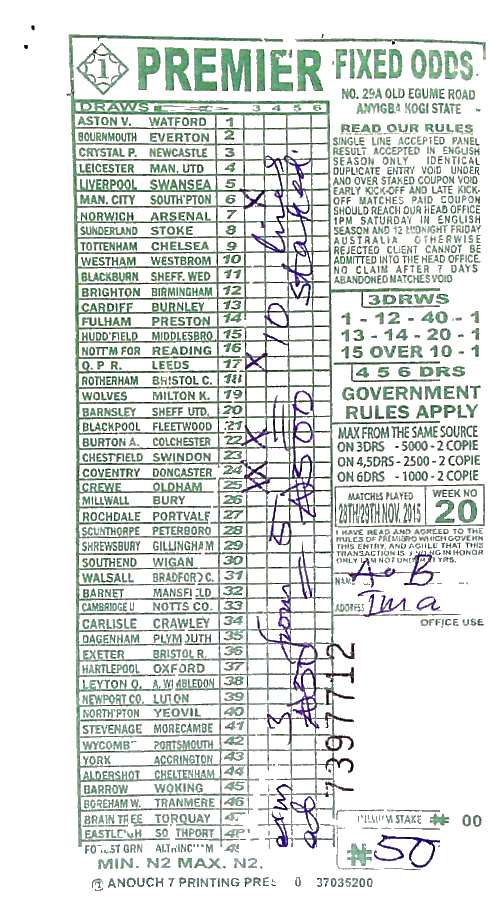 1 PREMIER FIXED ODDS
NO. 29A OLD EGUME ROAD
ANYIGBA KOGI STATE
DRAWS 3 4 5 6
ASTON V. WATFORD 1
BOURNMOUTH EVERTON 2
CRYSTAL P. NEWCASTLE 3
LEICESTER MAN. UTD 4
LIVERPOOL SWANSEA 5
MAN. CITY SOUTH'PTON 6 X
NORWICH ARSENAL 7
SUNDERLAND STOKE 8
TOTTENHAM CHELSEA 9
WESTHAM WESTBROM 10
BLACKBURN SHEFF. WED 11
BRIGHTON BIRMINGHAM 12
CARDIFF BURNLEY 13
FULHAM PRESTON 14
HUDD'FIELD MIDDLESBRO. 15
NOTT'M FOR READING 16
Q. P. R. LEEDS 17 X
ROTHERHAM BRISTOL C. 18
WOLVES MILTON K. 19
BARNSLEY SHEFF UTD. 20
BLACKPOOL FLEETWOOD 21
BURTON A. COLCHESTER 22 X
CHESTFIELD SWINDON 23
COVENTRY DONCASTER 24 X
CREWE OLDHAM 25 X
MILLWALL BURY 26
ROCHDALE PORTVALE 27
SCUNTHORPE PETERBORO 28
SHREWSBURY GILLINGHAM 29
SOUTHEND WIGAN 30
WALSALL BRADFORD C. 31
BARNET MANSFIELD 32
CAMBRIDGE U NOTTS CO. 33
CARLISLE CRAWLEY 34
DAGENHAM PLYMOUTH 35
EXETER BRISTOL R. 36
HARTLEPOOL OXFORD 37
LEYTON O. A. WIMBLEDON 38
NEWPORT CO. LUTON 39
NORTH'PTON YEOVIL 40
STEVENAGE MORECAMBE 41
WYCOMB PORTSMOUTH 42
YORK ACCRINGTON 43
ALDERSHOT CHELTENHAM 44
BARROW WOKING 45
BOREHAM W. TRANMERE 46
BRAIN TREE TORQUAY 47
EASTLEIGH SO THPORT 48
FOREST GRN ALTRINC'M 49
MIN. N2 MAX. N2.
3 from 5 = 10 lines
₦50 = ₦500 staked.
READ OUR RULES
SINGLE LINE ACCEPTED PANEL
RESULT ACCEPTED IN ENGLISH
SEASON ONLY IDENTICAL
DUPLICATE ENTRY VOID UNDER
AND OVER STAKED COUPON VOID
EARLY KICK-OFF AND LATE KICK-
OFF MATCHES PAID COUPON
SHOULD REACH OUR HEAD OFFICE
1PM SATURDAY IN ENGLISH
SEASON AND 12 MIDNIGHT FRIDAY
AUSTRALIA OTHERWISE
REJECTED CLIENT CANNOT BE
ADMITTED INTO THE HEAD OFFICE.
NO CLAIM AFTER 7 DAYS
ABANDONED MATCHES VOID
3DRWS
1 - 12 - 40 - 1
13 - 14 - 20 - 1
15 OVER 10 - 1
4 5 6 DRS
GOVERNMENT
RULES APPLY
MAX FROM THE SAME SOURCE
ON 3DRS - 5000 - 2 COPIE
ON 4,5DRS - 2500 - 2 COPIE
ON 6DRS - 1000 - 2 COPIE
MATCHES PLAYED
28TH/29TH NOV. 2015
WEEK NO
20
I HAVE READ AND AGREED TO THE
RULES OF PREMIER WHICH GOVERN
THIS ENTRY, AND AGREE THAT THIS
TRANSACTION IS BINDING IN HONOR
ONLY I AM NOT UNDER YRS.
NAME A.B
ADDRESS Ima
OFFICE USE
7397712
MINIMUM STAKE ₦ 00
₦50
1 ANOUCH 7 PRINTING PRES 0 37035200